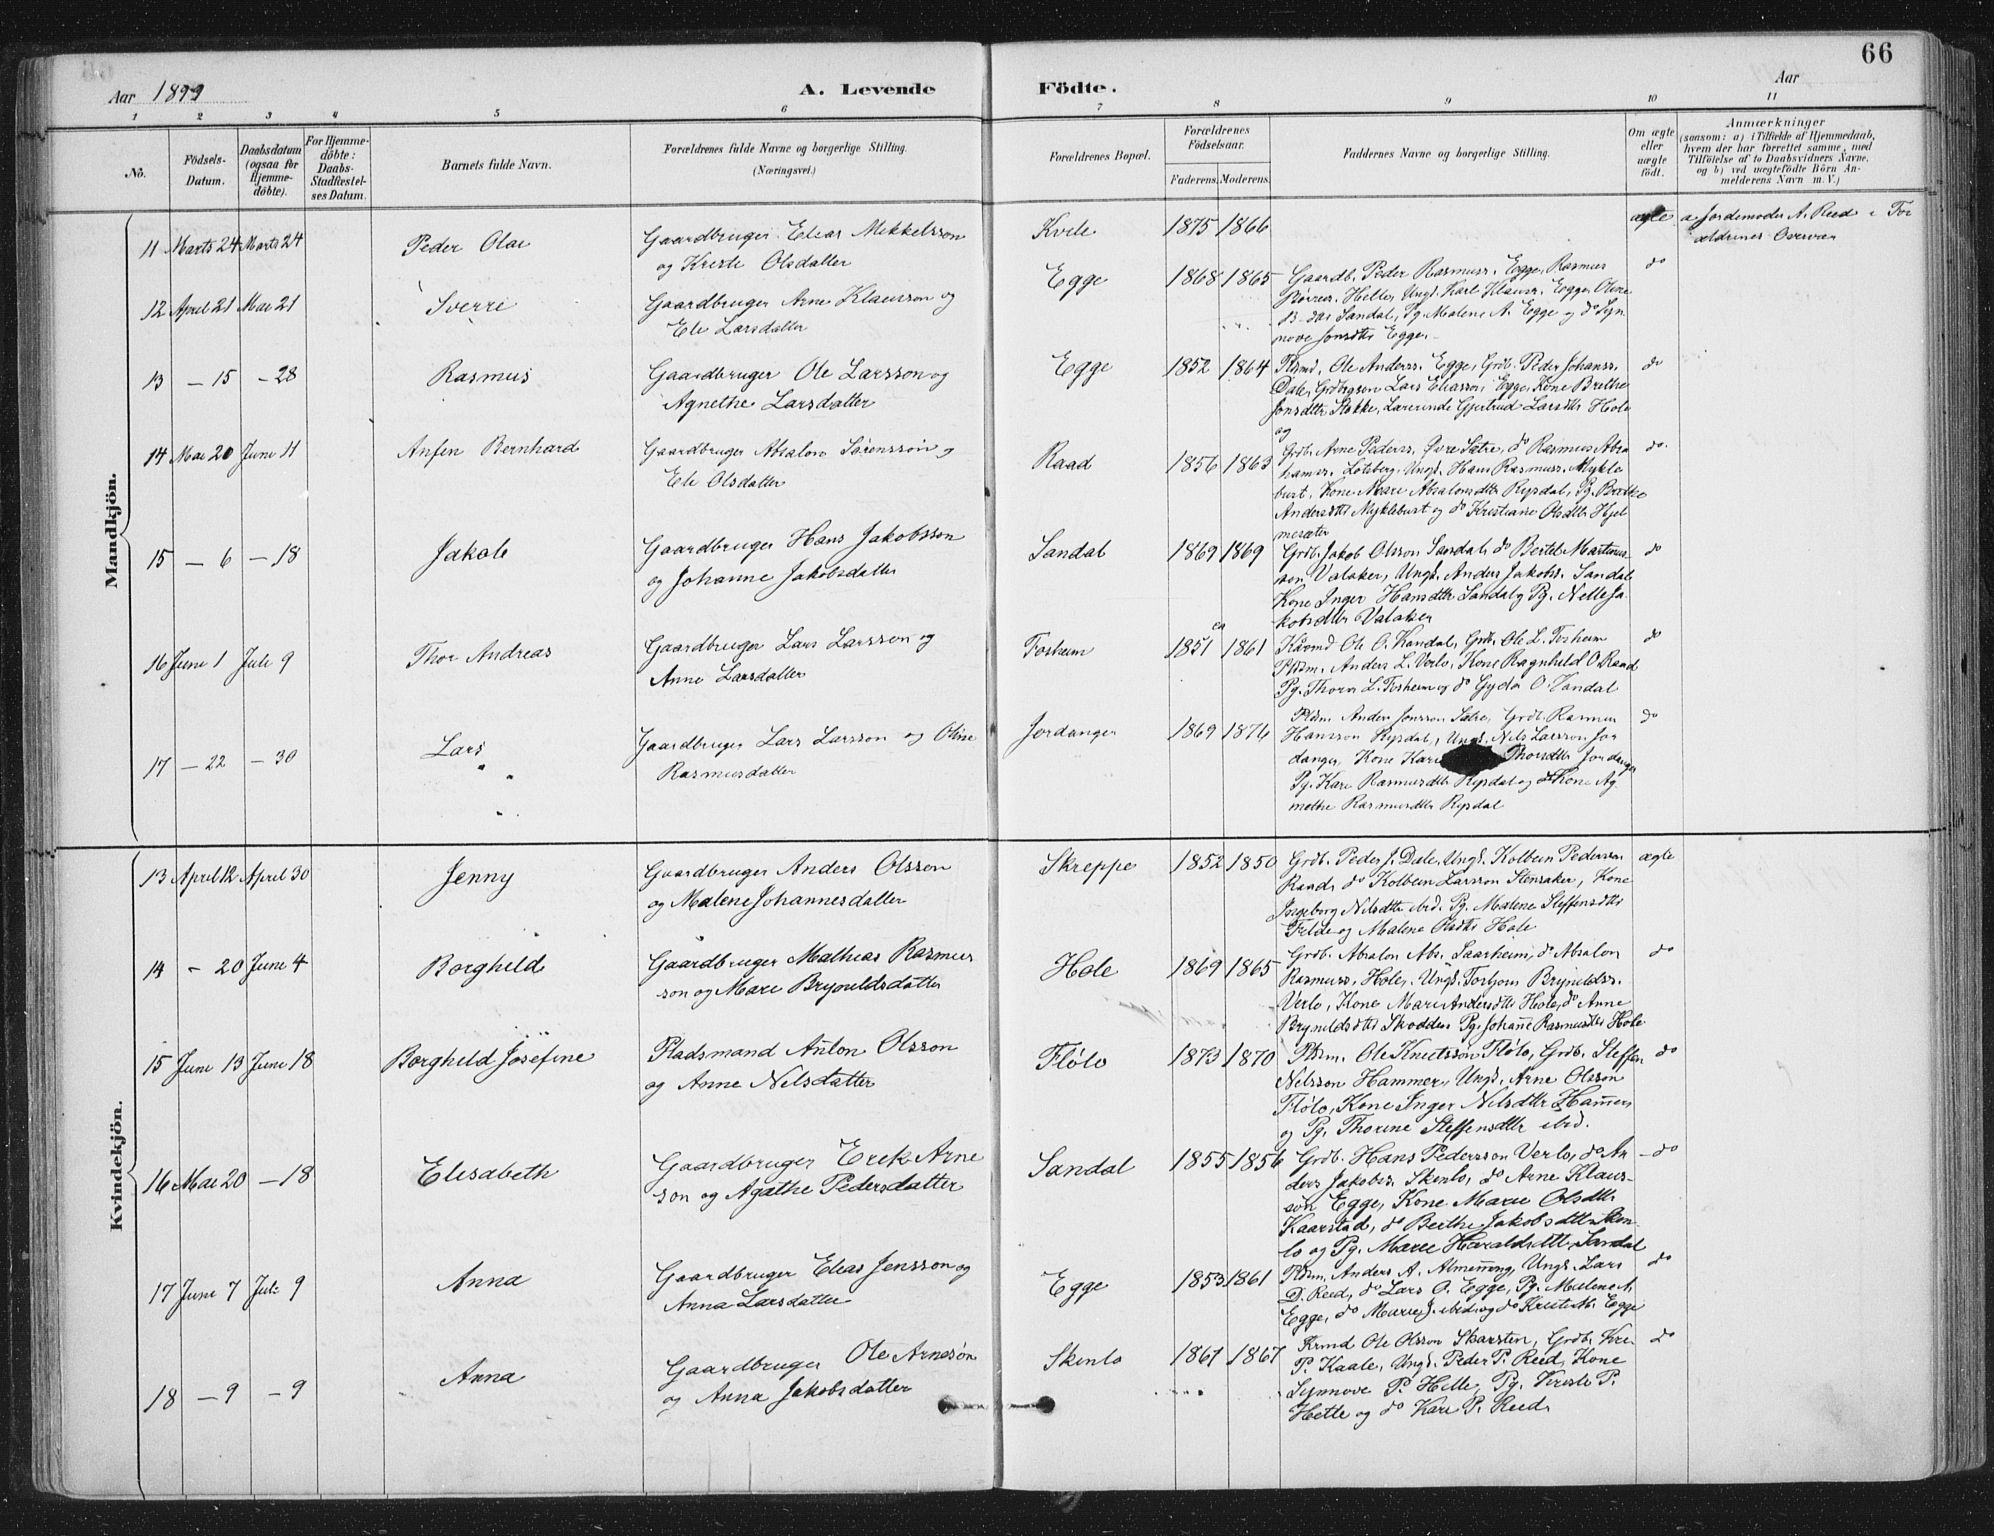 66
Aar 1899
A. Levende
Födte.
Aar
1 2 3 4 5 6 7 8 9 10 11
No.
Födsels-
Datum.
Daabsdatum
(ogsaa for
Hjemme-
döbte).
For Hjemme-
döbte:
Daabs-
Stadfæstel-
ses Datum.
Barnets fulde Navn.
Forældrenes fulde Navne og borgerlige Stilling.
(Næringsvei.)
Forældrenes Bopæl.
Forældrenes
Födselsaar.
Faderens. Moderens.
Faddernes Navne og borgerlige Stilling.
Om ægte
eller
uægte
födt.
Anmærkninger
(saasom: a) i Tilfælde af Hjemmedaab,
hvem der har forrettet samme, med
Tilföielse af to Daabsvidners Navne,
og b) ved uægtefödte Börn An-
melderens Navn m. V.)
Mandkjön.
11 Marts 24 Marts 24
Peder Olai
Gaardbruger Elias Mikkelsson
og Kristi Olsdatter
Kvile
1875 1866
ægte
a Jordemoder A. Reed i For
ældrenes Overvær
12 April 21 Mai 21
Sverre
Gaardbruger Arne Klausson og
Eli Larsdatter
Egge
1868 1865
Gaardb. Peder Rasmuss. Egge, Rasmus
Helle, Ungk. Karl Klauss. Egge, Oline
Sandal, Pg. Malene A. Egge og do Syn-
nove Jonsdtr Egge.
do
13 - 15 - 28
Rasmus
Gaardbruger Ole Larsson og
Agnethe Larsdatter
Egge
1852 1864
Pldsmd. Ole Anderss. Egge, Grdb. Peder Johanss.
Dale, Grdbrgson Lars Eliasson Egge, Kone Brethe
Jonsdtr Støkke, Lærerinde Gjertrud Larsdtr Hole
og
do
14 Mai 20 Juni 11
Anfin Bernhard
Gaardbruger Absalon Sørensson og
Eli Olsdatter
Raad
1856 1863
Grdb. Arne Pederss. Øvre Sætre, do Rasmus Abra
hamss. Løteberg, Ungk. Hans Rasmuss. Mykle
bust, Kone Mari Absalonsdtr Rysdal, Pg. Berthe
Andersdtr Myklebust og do Kristiane Olsdtr Hjel
mesæter
do
15 - 6 - 18
Jakob
Gaardbruger Hans Jakobsson
og Johanne Jakobsdatter
Sandal
1869 1869
Grdb. Jakob Olsson Sandal, do Bertel Martinus-
son Valaker, Ungk. Anders Jakobs. Sandal
Kone Inger Hansdtr Sandal og Pg. Nille Ja-
kobsdtr Valaker
do
16 Juni 1 Juli 9
Thor Andreas
Gaardbruger Lars Larsson og
Anne Larsdatter
Fosheim
ca
1851 1861
Kaarmd Ole O. Sandal, Grdb. Ole L. Fosheim
Pldsm. Anders L. Verlo, Kone Ragnhild O Raad
Pg. Thora L. Fosheim og do Gyda O. Sandal
do
17 - 22 - 30
Lars
Gaardbruger Lars Larsson og Oline
Rasmusdatter
Jordanger
1869 1876
Pldsm. Anders Jonsson Sætre, Grdb. Rasmus
Hansson Rysdal, Ungk. Nils Larsson Jor
danger, Kone Kari Thorsdtr Jordanger
Pg. Kari Rasmusdtr Rysdal og do Kone Ag
nethe Rasmusdtr Rysdal
do
Kvindekjön.
13 April 12 April 30
Jenny
Gaardbruger Anders Olsson
og Malene Johannesdatter
Skreppe
1852 1850
Grdb. Peder J. Dale, Ungk. Kolbein Pederss.
Raad, do Kolbein Larsson Stensaker, Kone
Ingeborg Nilsdtr ibid. Pg. Malene Steffensdtr
Felde og Malene Olsdtr Hole
ægte
14 - 20 Juni 4
Borghild
Gaardbruger Mathias Rasmus
son og Mari Bryníldsdatter
Hole
1869 1865
Grdb. Absalon Abs. Saasheim, do Absalon
Rasmuss. Hole, Ungk. Torbjørn Brynildss.
Verlo, Kone Mari Andersdtr Hole, do Anne
Brynildsdtr Skodden Pg. Johanne Rasmusdtr Hole
do
15 Juni 13 Juni 18
Borghild Josefine
Pladsmand Anton Olsson
og Anne Nilsdatter
Flølo
1873 1870
Pldsm. Ole Knutsson Flølo, Grdb. Steffen
Nilsson Hammer, Ungk. Arne Olsson
Flølo, Kone Inger Nilsdtr Hammer
og Pg. Thorine Steffensdtr ibid.
do
16 Mai 20 - 18
Elisabeth
Gaardbruger Erik Arne
son og Agathe Pedersdatter
Sandal
1855 1856
Grdb. Hans Pedersson Verlo, do An-
ders Jakobss. Skinlo, do Arne Klaus-
son Egge, Kone Marie Olsdtr
Kaarstad, do Berthe Jakobsdtr Skin-
lo og Pg. Marie Haraldsdtr Sandal
do
17 Juni 7 Juli 9
Anna
Gaardbruger Elias Jensson og
Anna Larsdatter
Egge
1853 1861
Pldsm. Anders A. Almenning, Ungk. Lars
D. Reed, do Lars O. Egge, Pg. Malene A.
Egge, do Marie J. ibid og do Kristi M. Egge
do
18 - 9 - 9
Anna
Gaardbruger Ole Arnesøn
og Anna Jakobsdatter
Skinlo
1861 1867
Krmd Ole Olsson Skarsten, Grdb.
P. Kaale, Ungk. Peder P. Reed, Kone
Synnove P. Helle, Pg. Kristi P.
Helle og do Kari P. Reed.
do